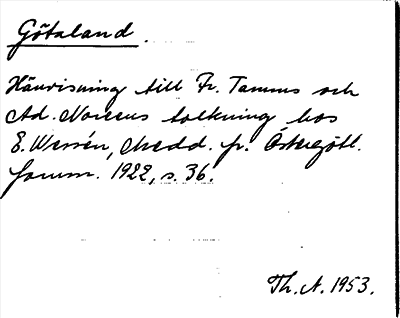 Götaland.
Hänvisning till Fr. Tamms och
Ad. Noreens tolkning hos
E. Wessén, Medd. fr. Östergötl.
fornm. 1922, s. 36.
Th. A. 1953.